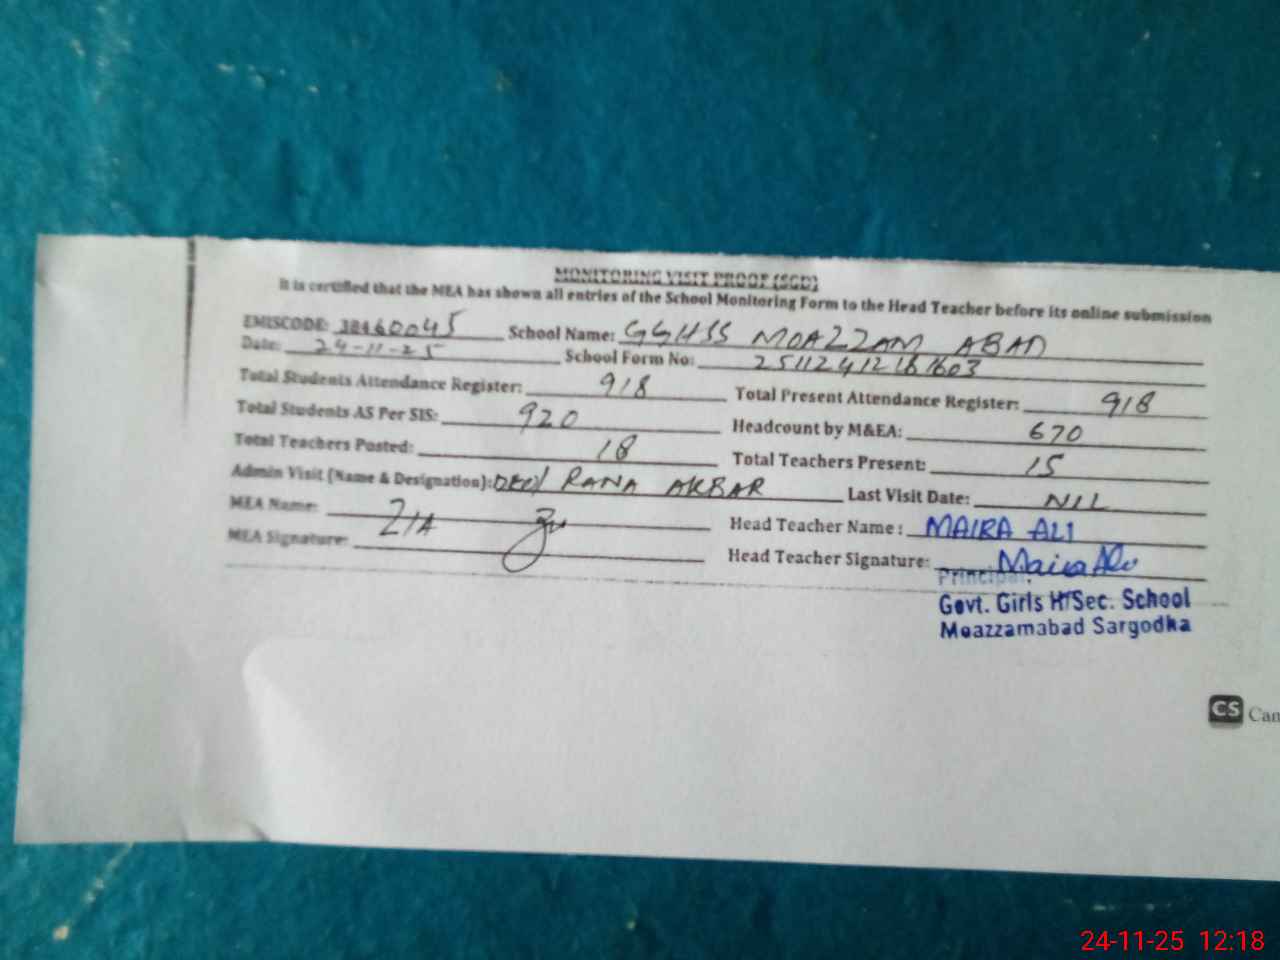 MONITORING VISIT PROOF (SGD)
It is certified that the MEA has shown all entries of the School Monitoring Form to the Head Teacher before its online submission
EMISCODE: 38460045 School Name: GGHSS MOAZZAM ABAD
Date: 24-11-25 School Form No: 25112412181603
Total Students Attendance Register: 918 Total Present Attendance Register: 918
Total Students AS Per SIS: 920 Headcount by M&EA: 670
Total Teachers Posted: 18 Total Teachers Present: 15
Admin Visit (Name & Designation): DEO/ RANA AKBAR Last Visit Date: NIL
MEA Name: ZIA Head Teacher Name: MAIRA ALI
MEA Signature: Head Teacher Signature: Maira Ali
Principal
Govt. Girls H/Sec. School
Moazzamabad Sargodha
CS Cam
24-11-25 12:18